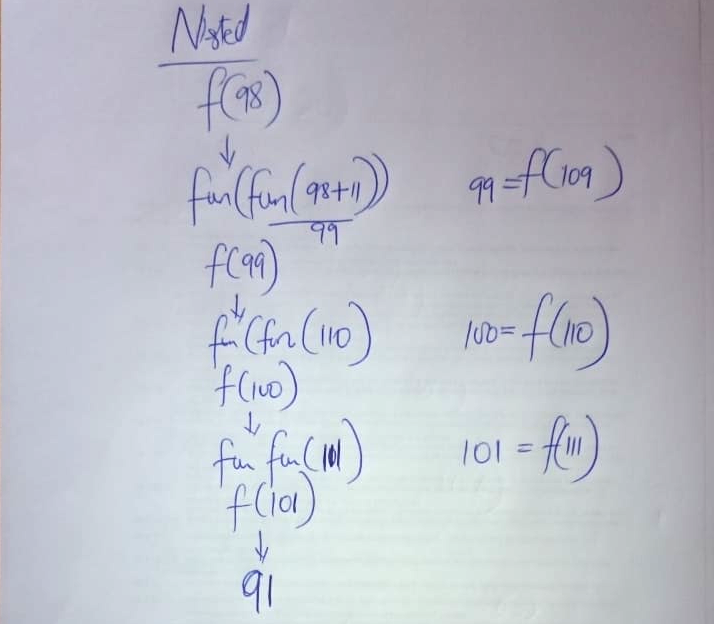 Nested
f(98)
↓
fun(fun(98+11)) 99=f(109)
99
f(99)
↓
fun(fun(110) 100=f(110)
f(100)
↓
fun fun(101) 101=f(111)
f(101)
↓
91